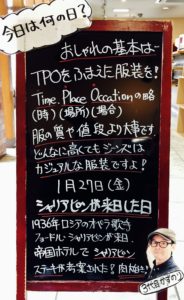 今日は何の日?
おしゃれの基本は…
TPOをふまえた服装を!
Time. Place Occationの略
(時) (場所) (場合)
服の質や値段より大事です。
どんなに高くてもジーンズは
カジュアルな服装ですよ!
1月27日(金)
シャリアピンが来日した日
1936年ロシアのオペラ歌手
フョードル・シャリアピンが来日
帝国ホテルでシャリアピン
ステーキが考案された!肉焼き!
3代目かずの